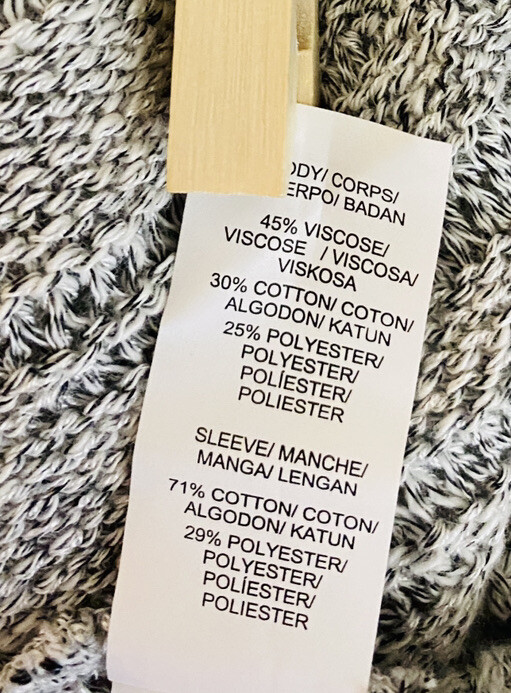 ODY/ CORPS/
ERPO/ BADAN
45% VISCOSE/
VISCOSE / VISCOSA/
VISKOSA
30% COTTON/ COTON/
ALGODON/ KATUN
25% POLYESTER/
POLYESTER/
POLÍESTER/
POLIESTER
SLEEVE/ MANCHE/
MANGA/ LENGAN
71% COTTON/ COTON/
ALGODON/ KATUN
29% POLYESTER/
POLYESTER/
POLÍESTER/
POLIESTER